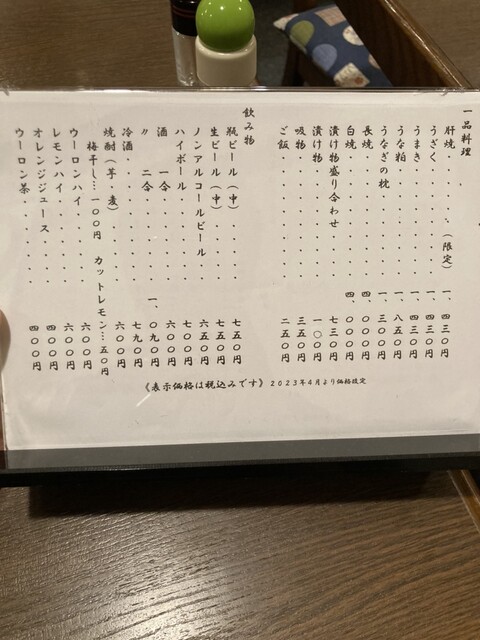 一品料理
肝焼・・・・(限定) 一、四三〇円
うざく・・・・・・・ 一、四三〇円
うまき・・・・・・・ 一、四三〇円
うな粕・・・・・・・ 八五〇円
うなぎの枕・・・・・ 一、三〇〇円
長焼・・・・・・・・ 四、〇〇〇円
白焼・・・・・・・・ 四、〇〇〇円
漬け物盛り合わせ・・・ 七三〇円
漬け物・・・・・・・ 一〇円
吸物・・・・・・・・ 三五〇円
ご飯・・・・・・・・ 二五〇円
飲み物
瓶ビール(中)・・・・ 七五〇円
生ビール(中)・・・・ 七五〇円
ノンアルコールビール・ 六五〇円
ハイボール・・・・・ 六〇〇円
酒 一合・・・・・・ 六〇〇円
〃 二合・・・・・・ 一、〇九〇円
冷酒・・・・・・・・ 七九〇円
焼酎(芋・麦)・・・・ 六〇〇円
梅干し…一〇〇円 カットレモン…五〇円
ウーロンハイ・・・・ 六〇〇円
レモンハイ・・・・・ 六〇〇円
オレンジジュース・・・ 四〇〇円
ウーロン茶・・・・・ 四〇〇円
《表示価格は税込みです》2023年4月より価格改定